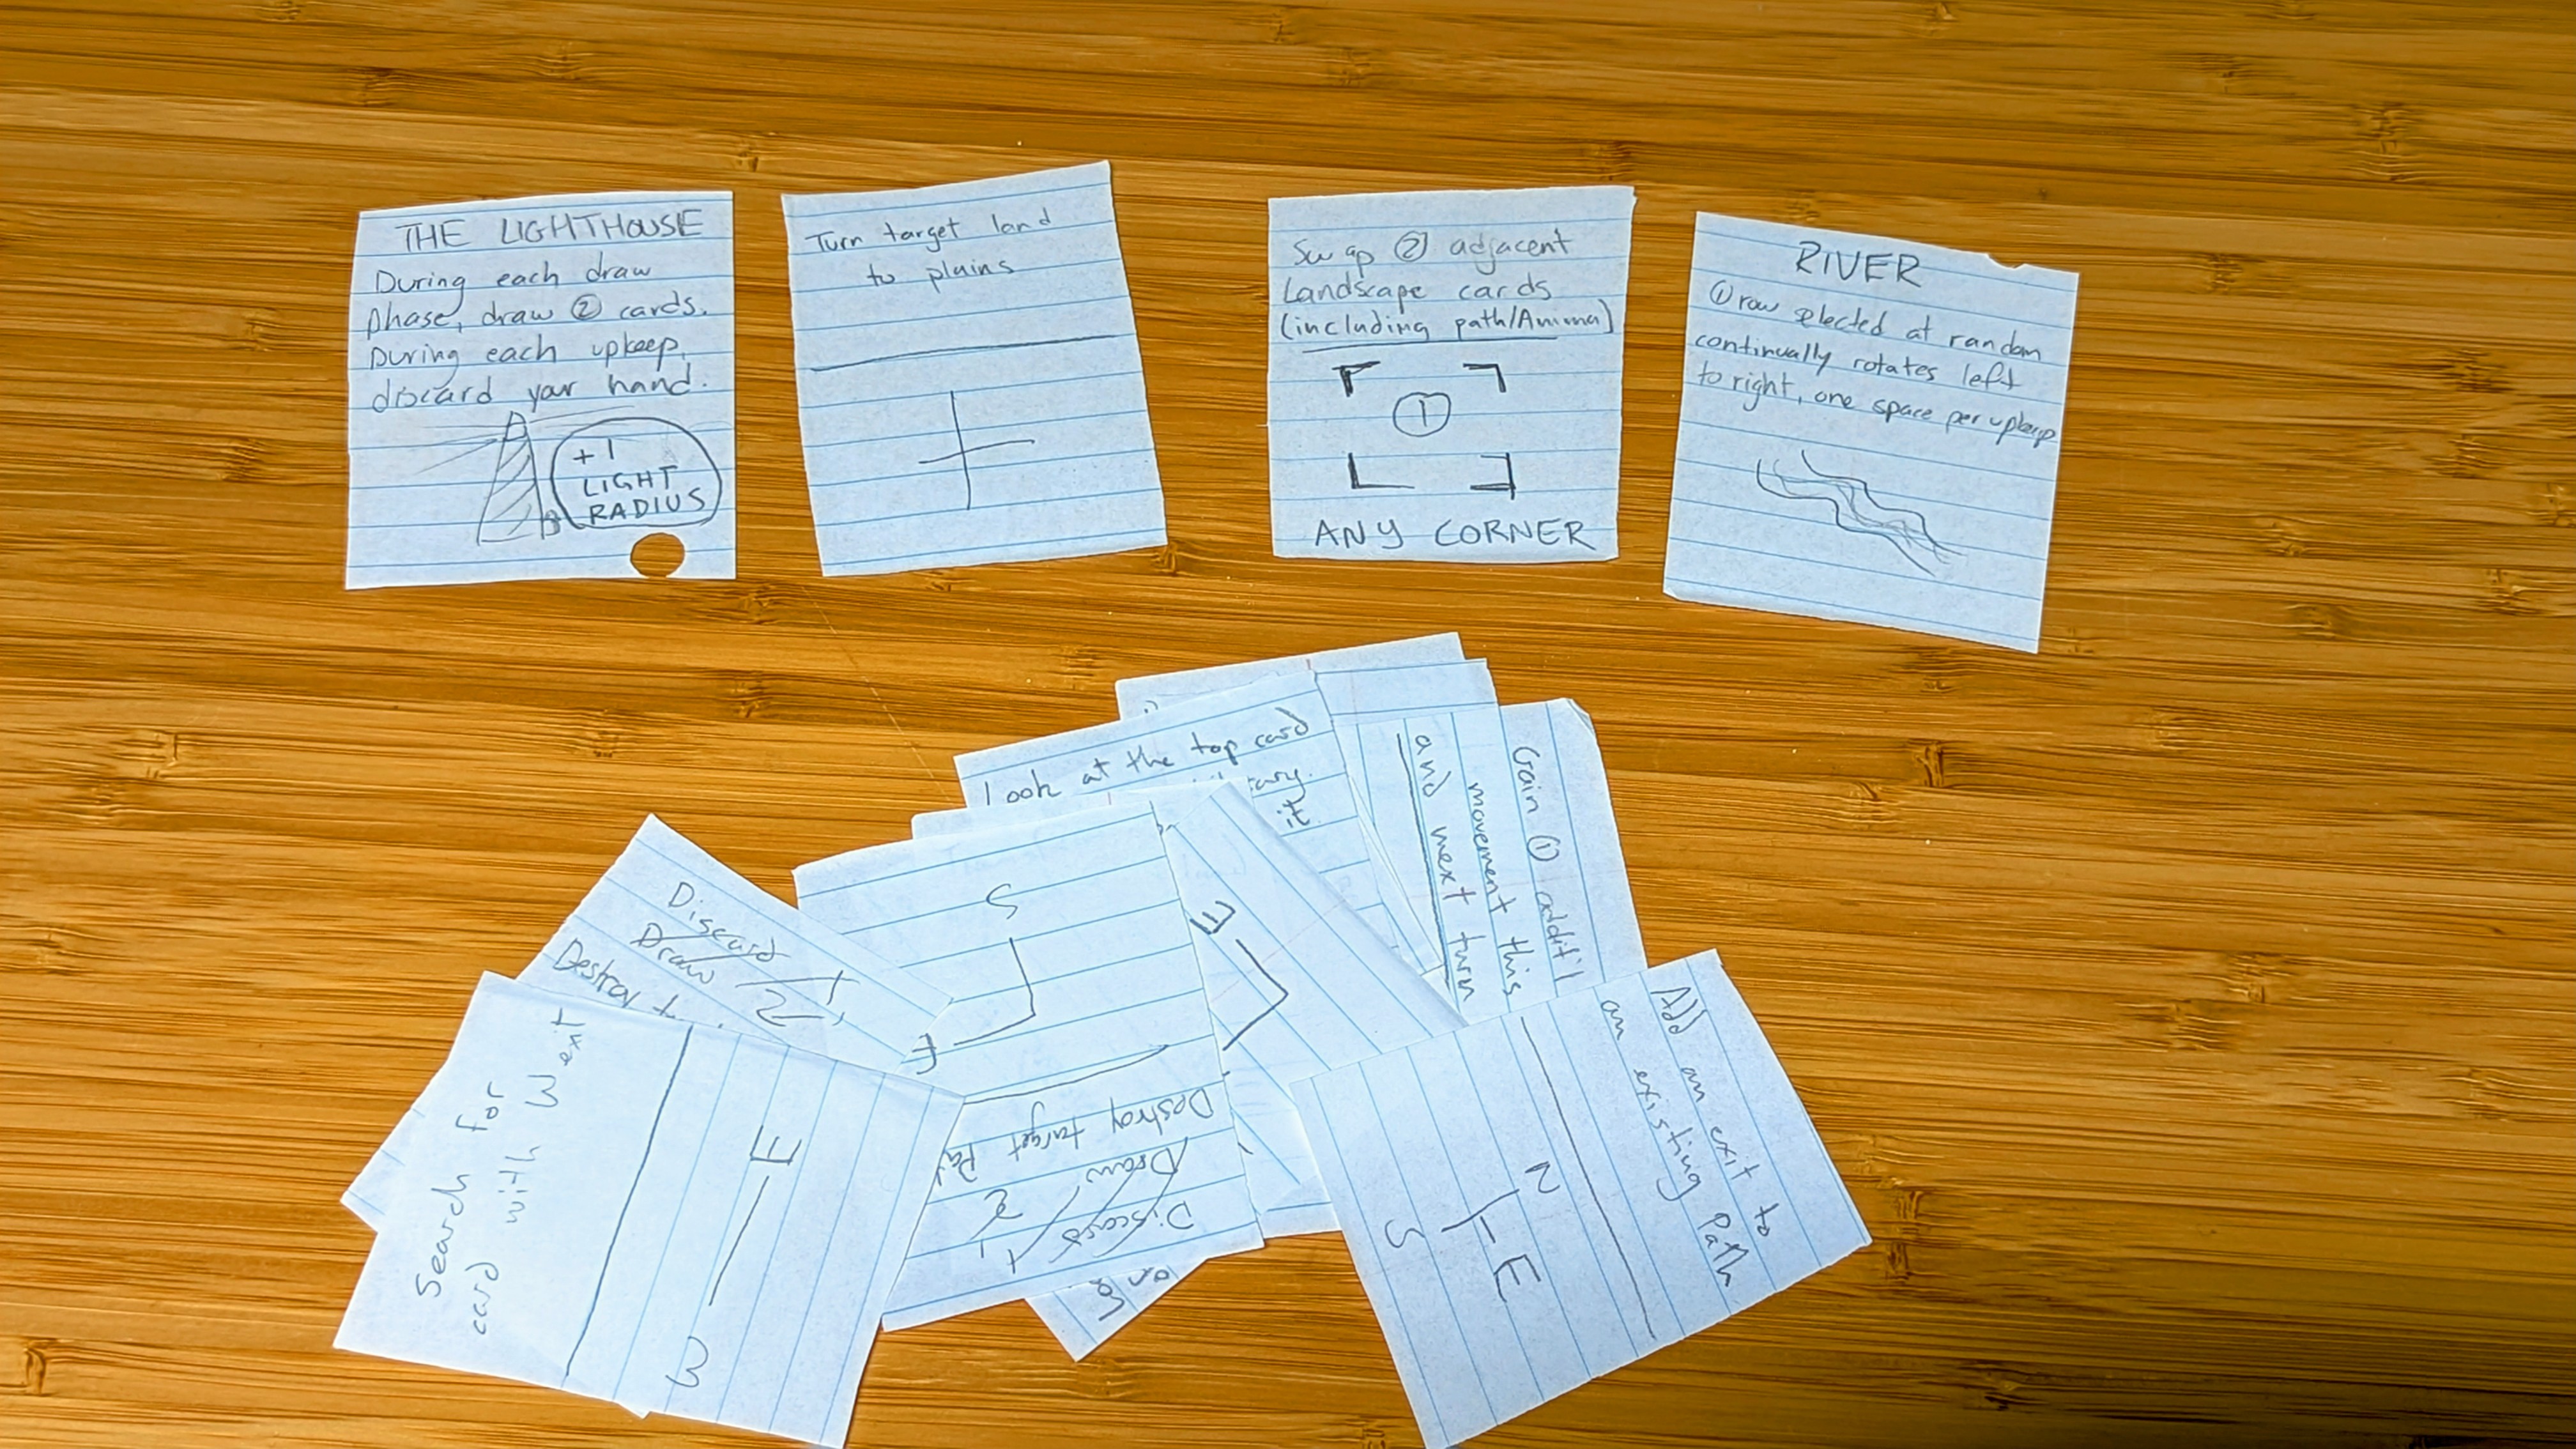 THE LIGHTHOUSE
During each draw
phase, draw ② cards.
During each upkeep,
discard your hand.
+1
LIGHT
RADIUS
Turn target land
to plains
Swap ② adjacent
Landscape cards
(including path/Anima)
①
ANY CORNER
RIVER
① row selected at random
continually rotates left
to right, one space per upkeep
Look at the top card
it
Gain ① addit'l
movement this
and next turn
Discard 1
Draw 2
Destroy
S
E
Destroy target
Draw 2
Discard 1
E
Search for
card with W exit
E
W
Add an exit to
an existing Path
N
E
S